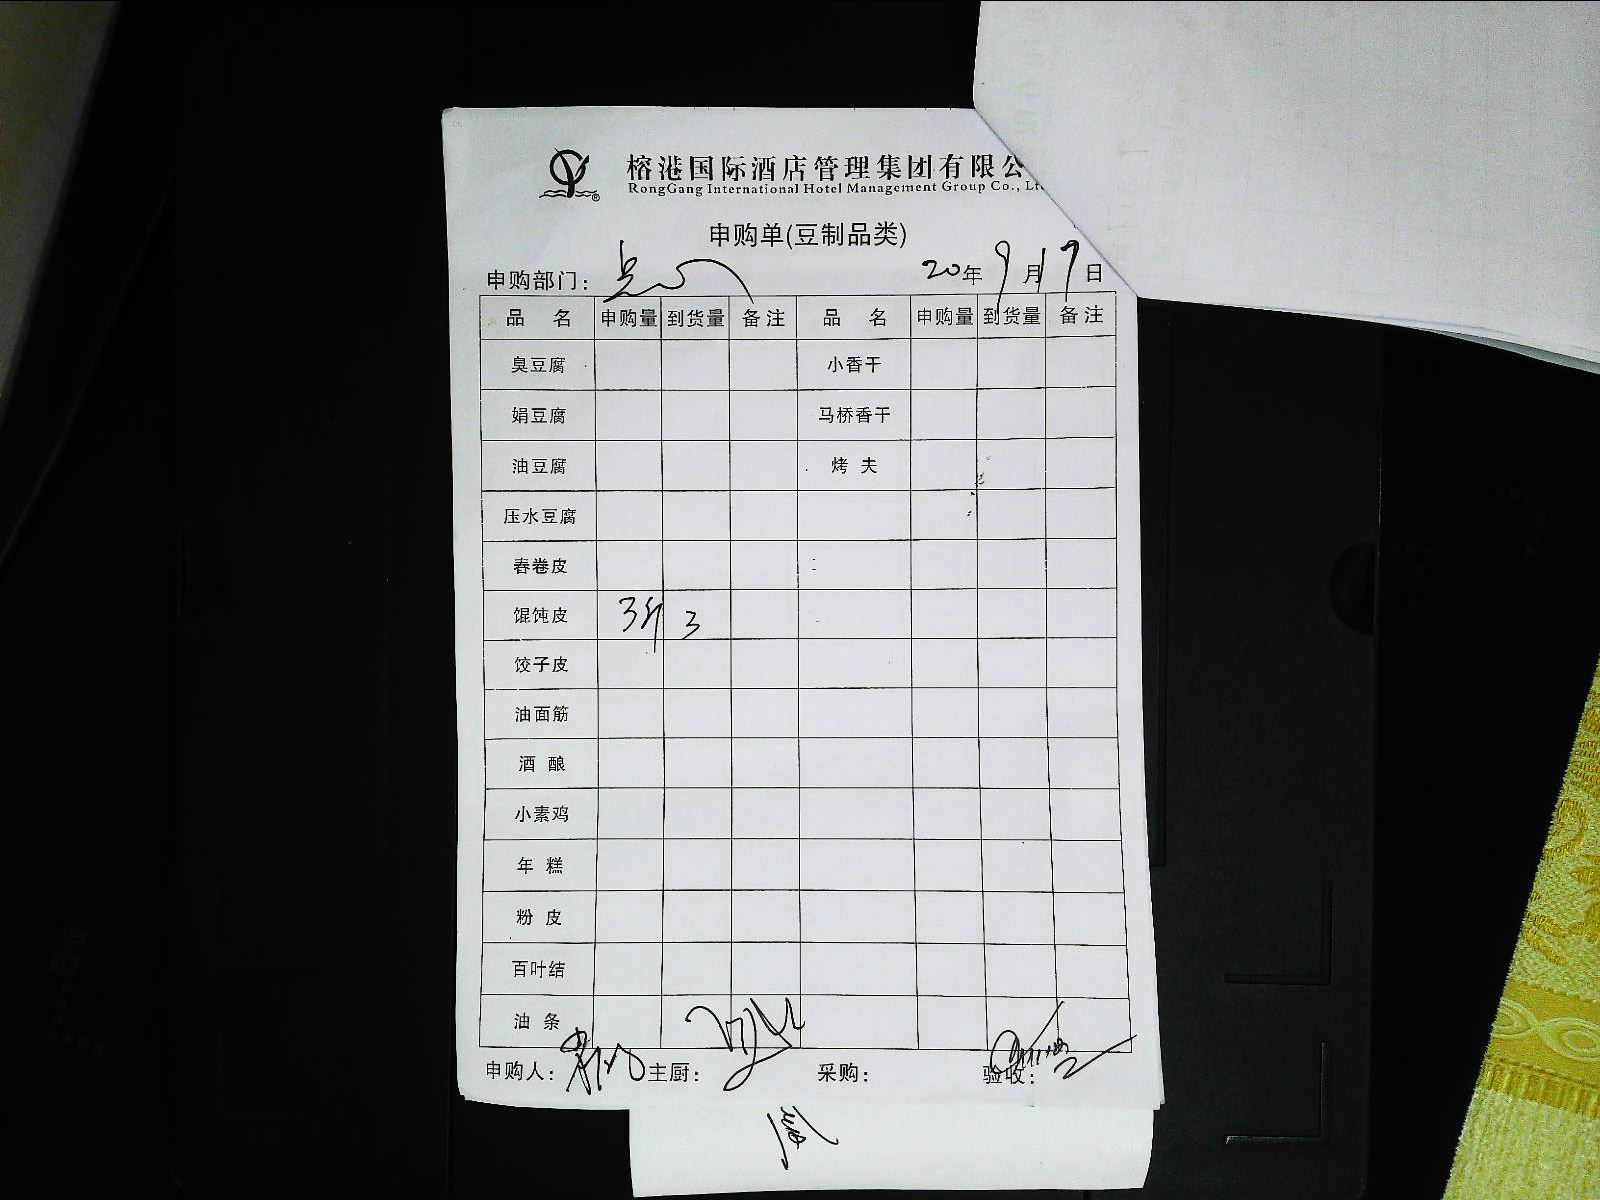 榕港国际酒店管理集团有限公
RongGang International Hotel Management Group Co., Lt
申购单(豆制品类)
申购部门: 点心 20年9月17日
品 名 申购量 到货量 备注 品 名 申购量 到货量 备注
臭豆腐 小香干
娟豆腐 马桥香干
油豆腐 烤 夫
压水豆腐
春卷皮
馄饨皮 3斤 3
饺子皮
油面筋
酒 酿
小素鸡
年 糕
粉 皮
百叶结
油 条
申购人: 主厨: 采购: 验收: